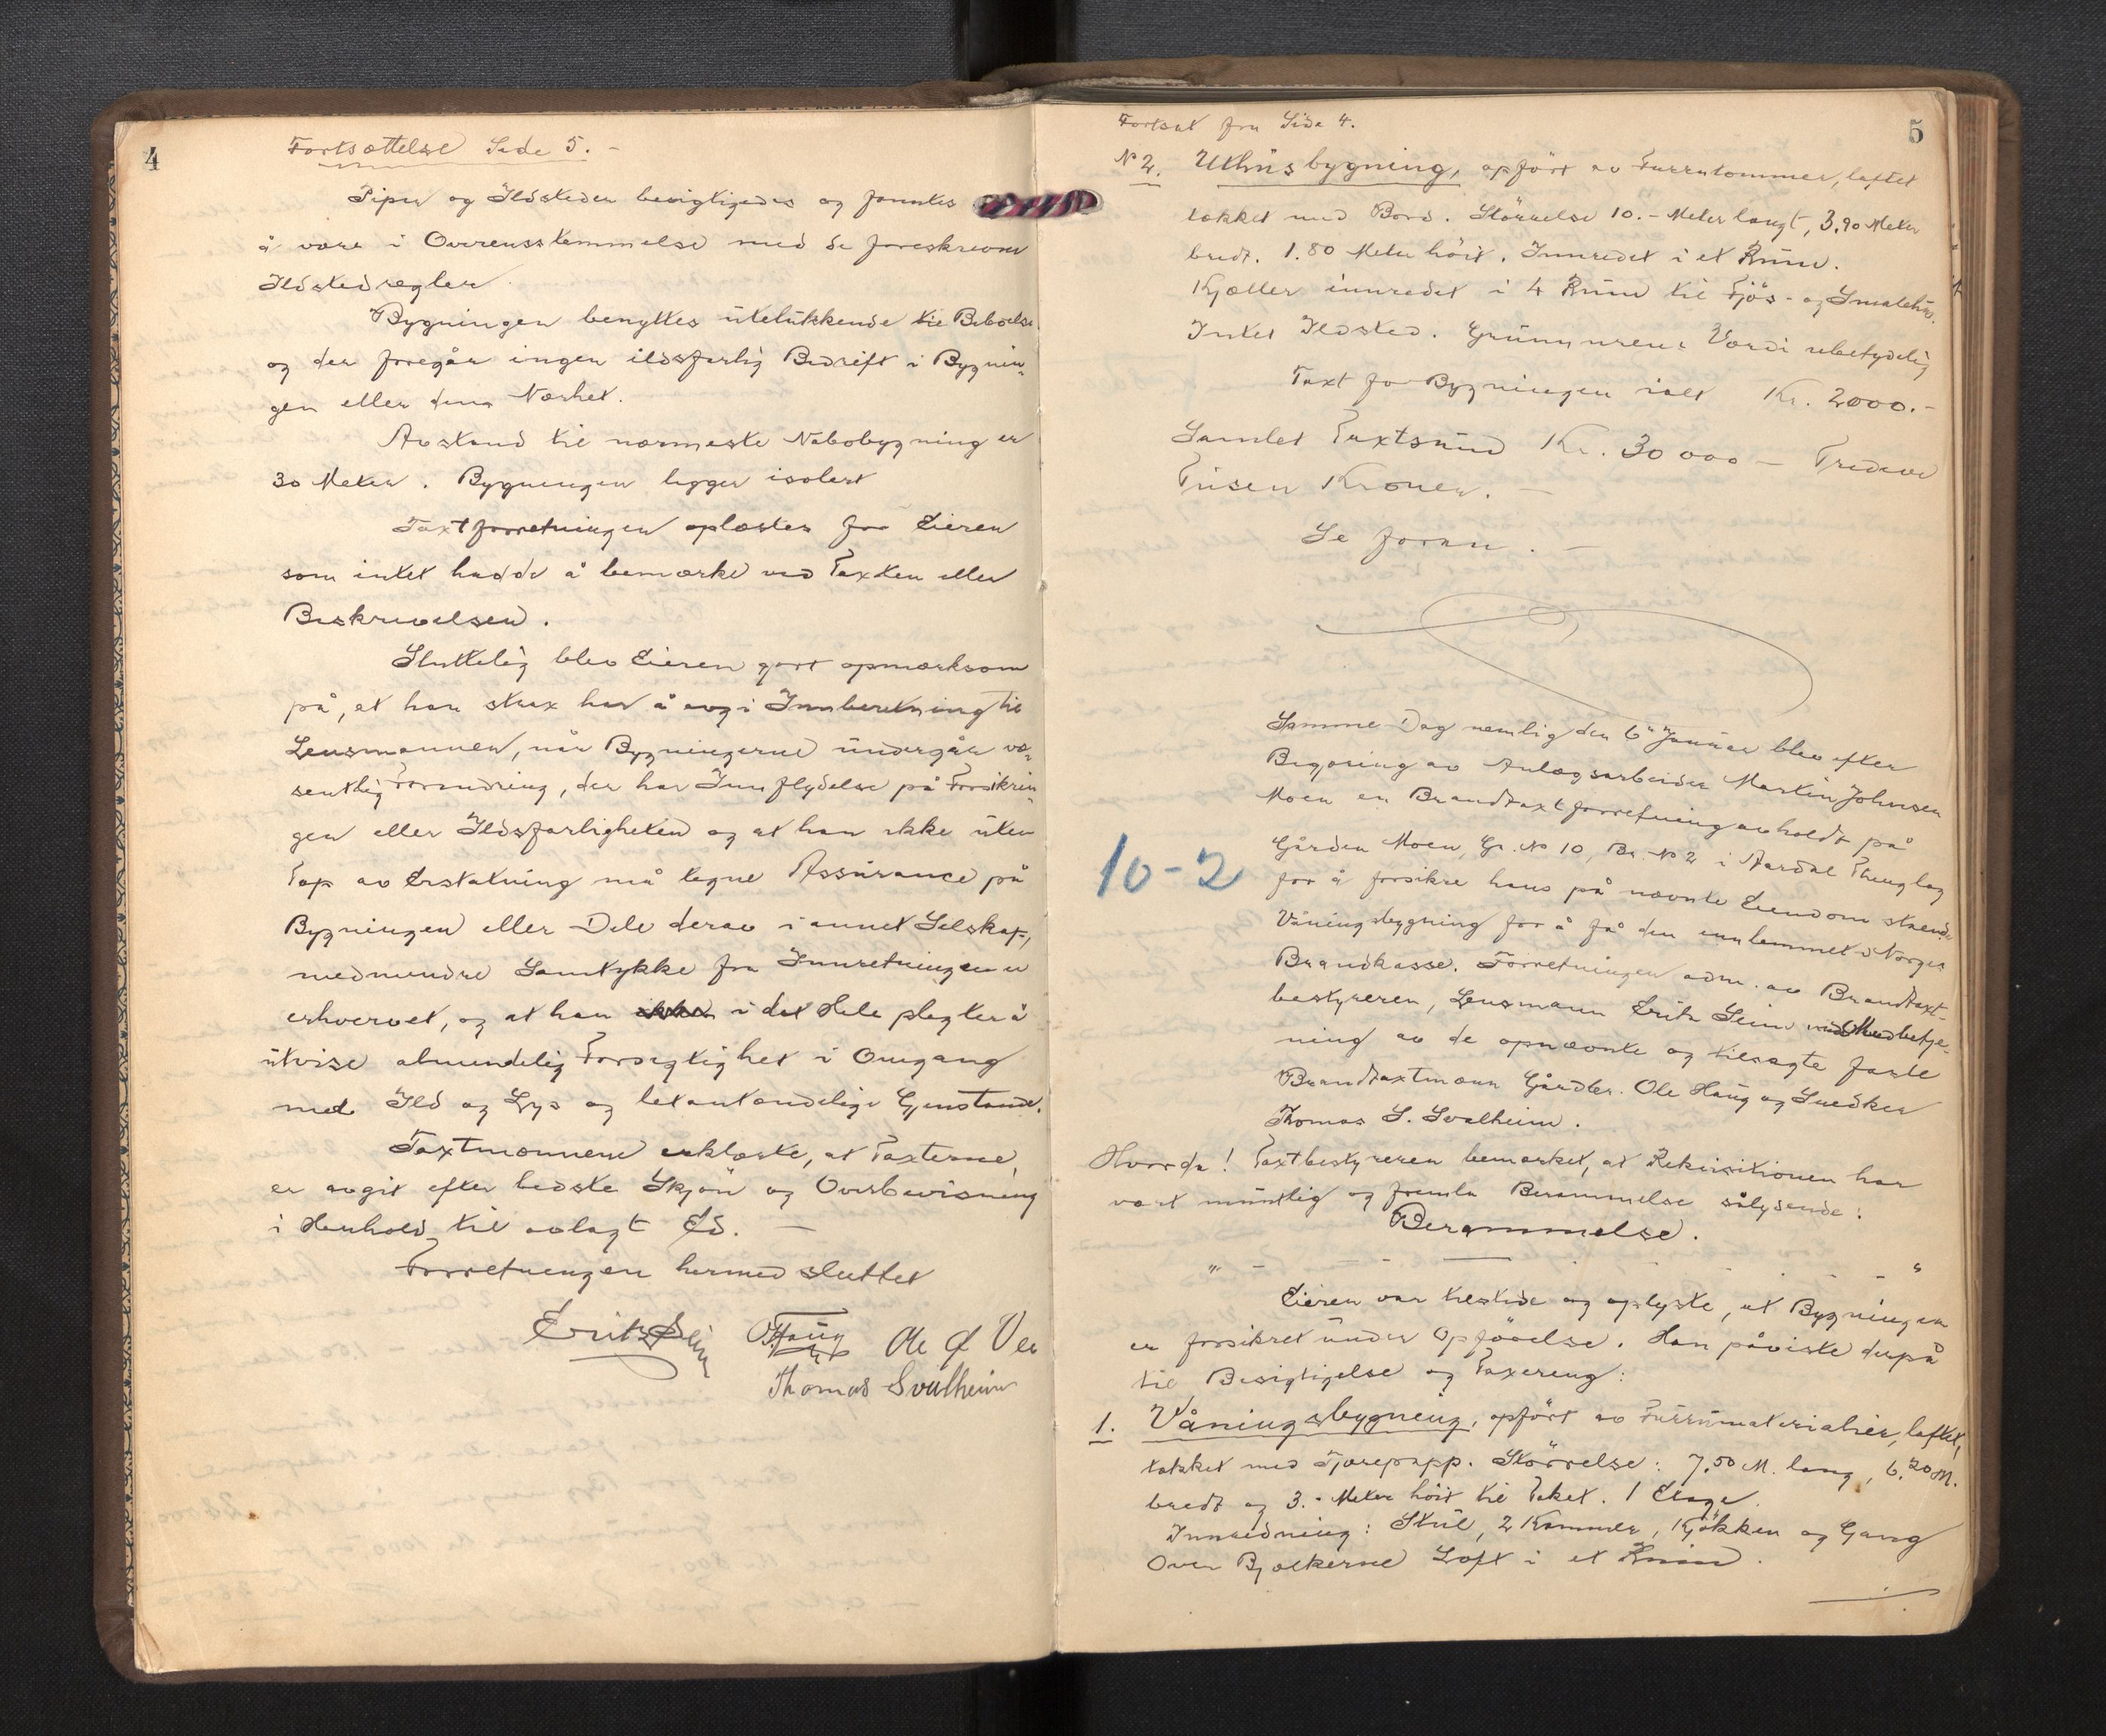 4
Fortsættelse Side 5. -
Piper og Ildsteder besigtigedes og fanntes
å være i Overensstemmelse med de foreskrevne
Ildstedregler
Bygningen benyttes utelukkende til Beboelse
og der foregår ingen ildsfarlig Bedrift i Bygnin-
gen eller dens Nærhet.
Avstand til nærmeste Nabobygning er
30 Meter. Bygningen ligger isolert
Taxtforretningen oplæstes for Eieren
som intet hadde å bemærke ved Taxten eller
Beskrivelsen.
Sluttelig blev Eieren gjort opmærksom
på, at han strax har å avgi Innberetning til
Lensmannen, når Bygningerne undergår væ-
sentlig Forandring, der har Innflydelse på Forsikrin-
gen eller Ildsfarligheten og at han ikke uten
Tap av Erstatning må tegne Assurance på
Bygningen eller Dele derav i annet Selskap,
medmindre Samtykke fra Innretningen er
erhvervet, og at han i det Hele plegter å
utvise almindelig Forsigtighet i Omgang
med Ild og Lys og letantændelige Genstande.
Taxtmænnene erklærte, at Taxterne,
er avgit efter bedste Skjön og Overbevisning
i Henhold til avlagt Ed. -
Forretningen hermed sluttet
Erik Seim O Haug Ole O Ven
Thomas Svalheim
5
Fortsat fra Side 4.
No 2. Uthusbygning, opfört av Furrutömmer, laftet
tækket med Bord. Störrelse 10.- Meter langt, 3,90 Meter
bredt. 1.80 Meter höit. Innredet i et Rum.
Kjæller innredet i 4 Rum til Fjös- og Smalehus.
Intet Ildsted. Grunmurens Værdi ubetydelig
Taxt for Bygningen ialt Kr. 2000.-
Samlet Taxtsum Kr. 30 000 - Tredeve
Tusen Kroner. -
Se foran. -
Samme Dag nemlig den 6te Januar blev efter
Begjæring av Anlægsarbeider Martin Johnsen
Moen en Brandtaxtforretning avholdt på
10-2
Gården Moen, Gr. No 10, Br. No 2 i Aardal Thinglag
for å forsikre hans på nævnte Eiendom stående
Våningsbygning for å få den innlemmet i Norges
Brandkasse. Forretningen adm. av Brandtaxt-
bestyreren, Lensmann Erik Seim med Medbetje-
ning av de opnævnte og tilsagte faste
Brandtaxtmænn Gårdbr. Ole Haug og Snedker
Thomas S. Svalheim.
Hvorda! Taxtbestyreren bemærket, at Rekvisitionen har
vært mundtlig og fremla Berammelse sålydende:
Berammelse.
" - - - - - - "
Eieren var tilstede og oplyste, at Bygningen
er forsikret under Opförelse. Han påviste derpå
til Besigtigelse og Taxering:
1. Våningsbygning, opfört av Furrumaterialier, laftet,
tækket med Tjærepapp. Störrelse: 7,50 M. lang, 6,20 M.
bredt og 3.- Meter höit til Taket. 1 Etage.
Innredning: Stue, 2 Kammer, Kjökken og Gang
Over Bjælkerne Loft i et Rum.